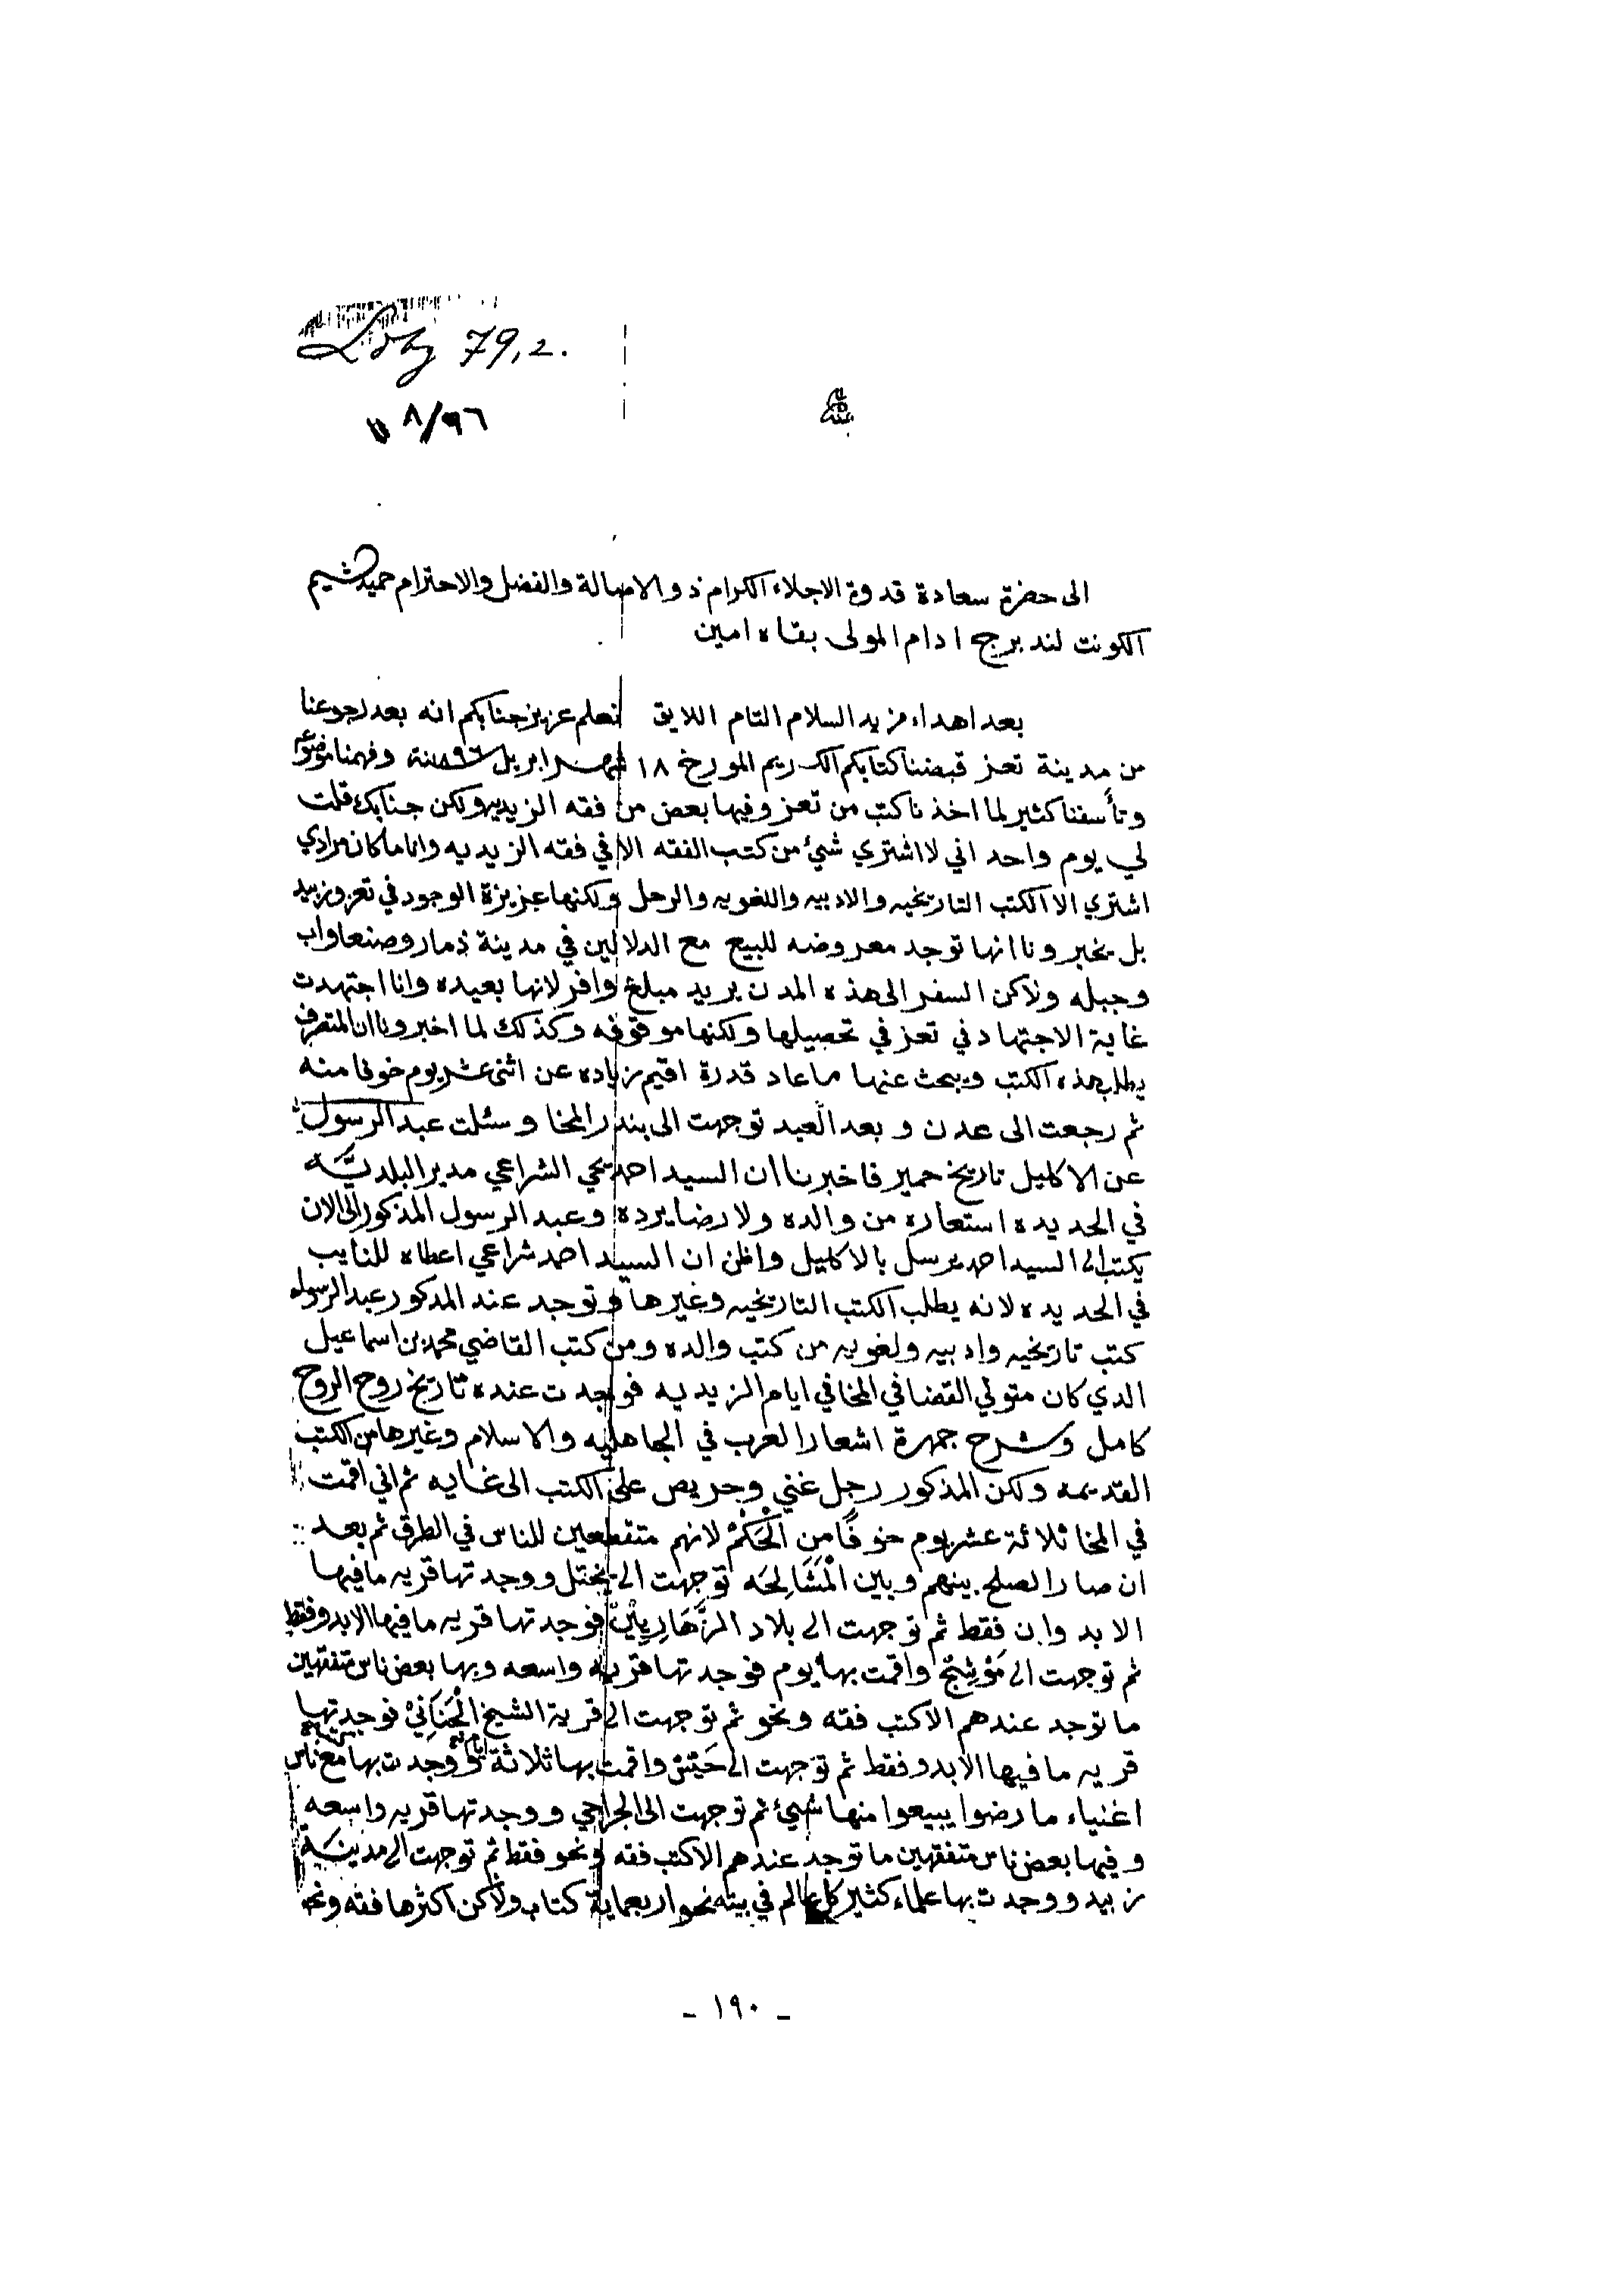 Ldbg 79,2.
٨/٩٦
الى حضرة سعادة قدوة الاجلاء الكرام ذو الاصالة والفضل والاحترام حميد الشيم
الكونت لندبرج ادام المولى بقاه امين
بعد اهداء مزيد السلام التام اللايق نعلم عزيز جنابكم انه بعد رجوعنا
من مدينة تعز قبضنا كتابكم الكريم المورخ ١٨ شهر ابريل سنة ٨٩٦ وفهمنا موضوعه
وتأسفنا كثير لما اخذنا كتب من تعز وفيها بعض من فقه الزيديه ولكن جنابك قلت
لي يوم واحد اني لا اشتري شيئ من كتب الفقه الا في فقه الزيديه وانا ما كان مرادي
اشتري الا الكتب التاريخيه والادبيه واللغويه والرحل ولكنها عزيزة الوجود في تعز وزبيد
بل يخبرونا انها توجد معروضه للبيع مع الدلالين في مدينة ذمار وصنعا واب
وجبله ولاكن السفر الى هذه المدن يريد مبلغ وافر لانها بعيده وانا اجتهدت
غاية الاجتهاد في تعز في تحصيلها ولكنها موقوفه وكذلك لما اخبرونا ان المتصرف
يطلب هذه الكتب ويبحث عنها ما عاد قدرة اقيم زياده عن اثنى عشر يوم خوفا منه
ثم رجعت الى عدن وبعد العيد توجهت الى بندر المخا وسئلت عبد الرسول
عن الاكليل تاريخ حمير فاخبرنا ان السيد احمد يحي الشراعي مدير البلديَّه
في الحديده استعاره من والده ولا رضا يرده وعبد الرسول المذكور الى الان
يكتب الى السيد احمد يرسل بالاكليل واظن ان السيد احمد شراعي اعطاه للنايب
في الحديده لانه يطلب الكتب التاريخيه وغيرها وتوجد عند المدكور عبد الرسول
كتب تاريخيه وادبيه ولغويه من كتب والده ومن كتب القاضي محمد بن اسماعيل
الدي كان متولي القضا في المخا في ايام الزيديه فوجدت عنده تاريخ روح الروح
كامل وشرح جمهرة اشعار العرب في الجاهليه والاسلام وغيرها من الكتب
القديمه ولكن المذكور رجل غني وحريص على الكتب الى غايه ثم اني اقمت
في المخا ثلاثة عشر يوم خوفًا من الْحَكَمْ لانهم متقطعين للناس في الطرق ثم بعد
ان صار الصلح بينهم وبين الْمَشَالِحَه توجهت الى يختل ووجدتها قريه ما فيها
الا بدوان فقط ثم توجهت الى بلاد الزَّهَارِيِيْنْ فوجدتها قريه ما فيها الا بدو فقط
ثم توجهت الى مَوْشِجْ واقمت بها يوم فوجدتها قريه واسعه وبها بعض ناس متفقهين
ما توجد عندهم الا كتب فقه ونحو ثم توجهت الى قرية الشيخ الْجَنَانِيْ فوجدتها
قريه ما فيها الا بدو فقط ثم توجهت الى حَيْسْ واقمت بها ثلاثة ايام ووجدت بها مع ناس
اغنياء ما رضوا يبيعوا منها شيئ ثم توجهت الى الجراحي ووجدتها قريه واسعه
وفيها بعض ناس متفقهين ما توجد عندهم الا كتب فقه ونحو فقط ثم توجهت الى مدينة
زبيد ووجدت بها علماء كثير كل عالم في بيته نحو اربعماية كتاب ولاكن اكثرها فقه ونحو
- ١٩٠ -